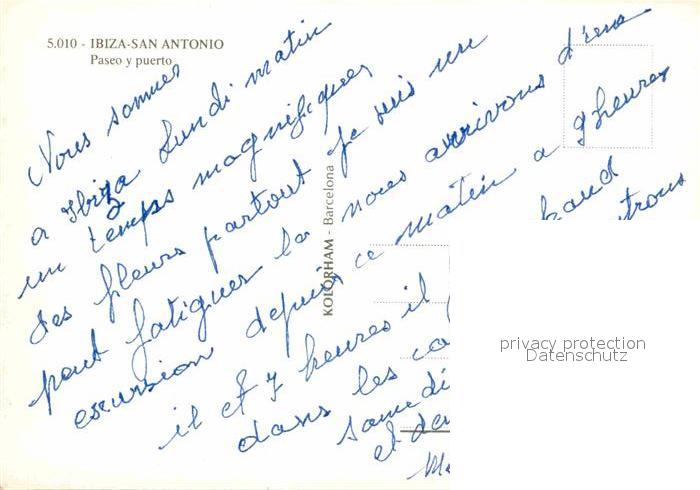 5.010 - IBIZA-SAN ANTONIO
Paseo y puerto
KOLORHAM - Barcelona
Nous sommes
a Ibiza Lundi matin
un temps magnifiques
des fleurs partout je suis un
peut fatiguer la nous arrivons d'une
excursion depuis ce matin a 9 heures
il et 7 heures il
dans les
samedi
et
privacy protection
Datenschutz